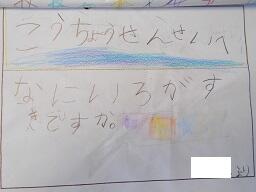 こうちょうせんせいへ
なにいろがす
きですか。
より